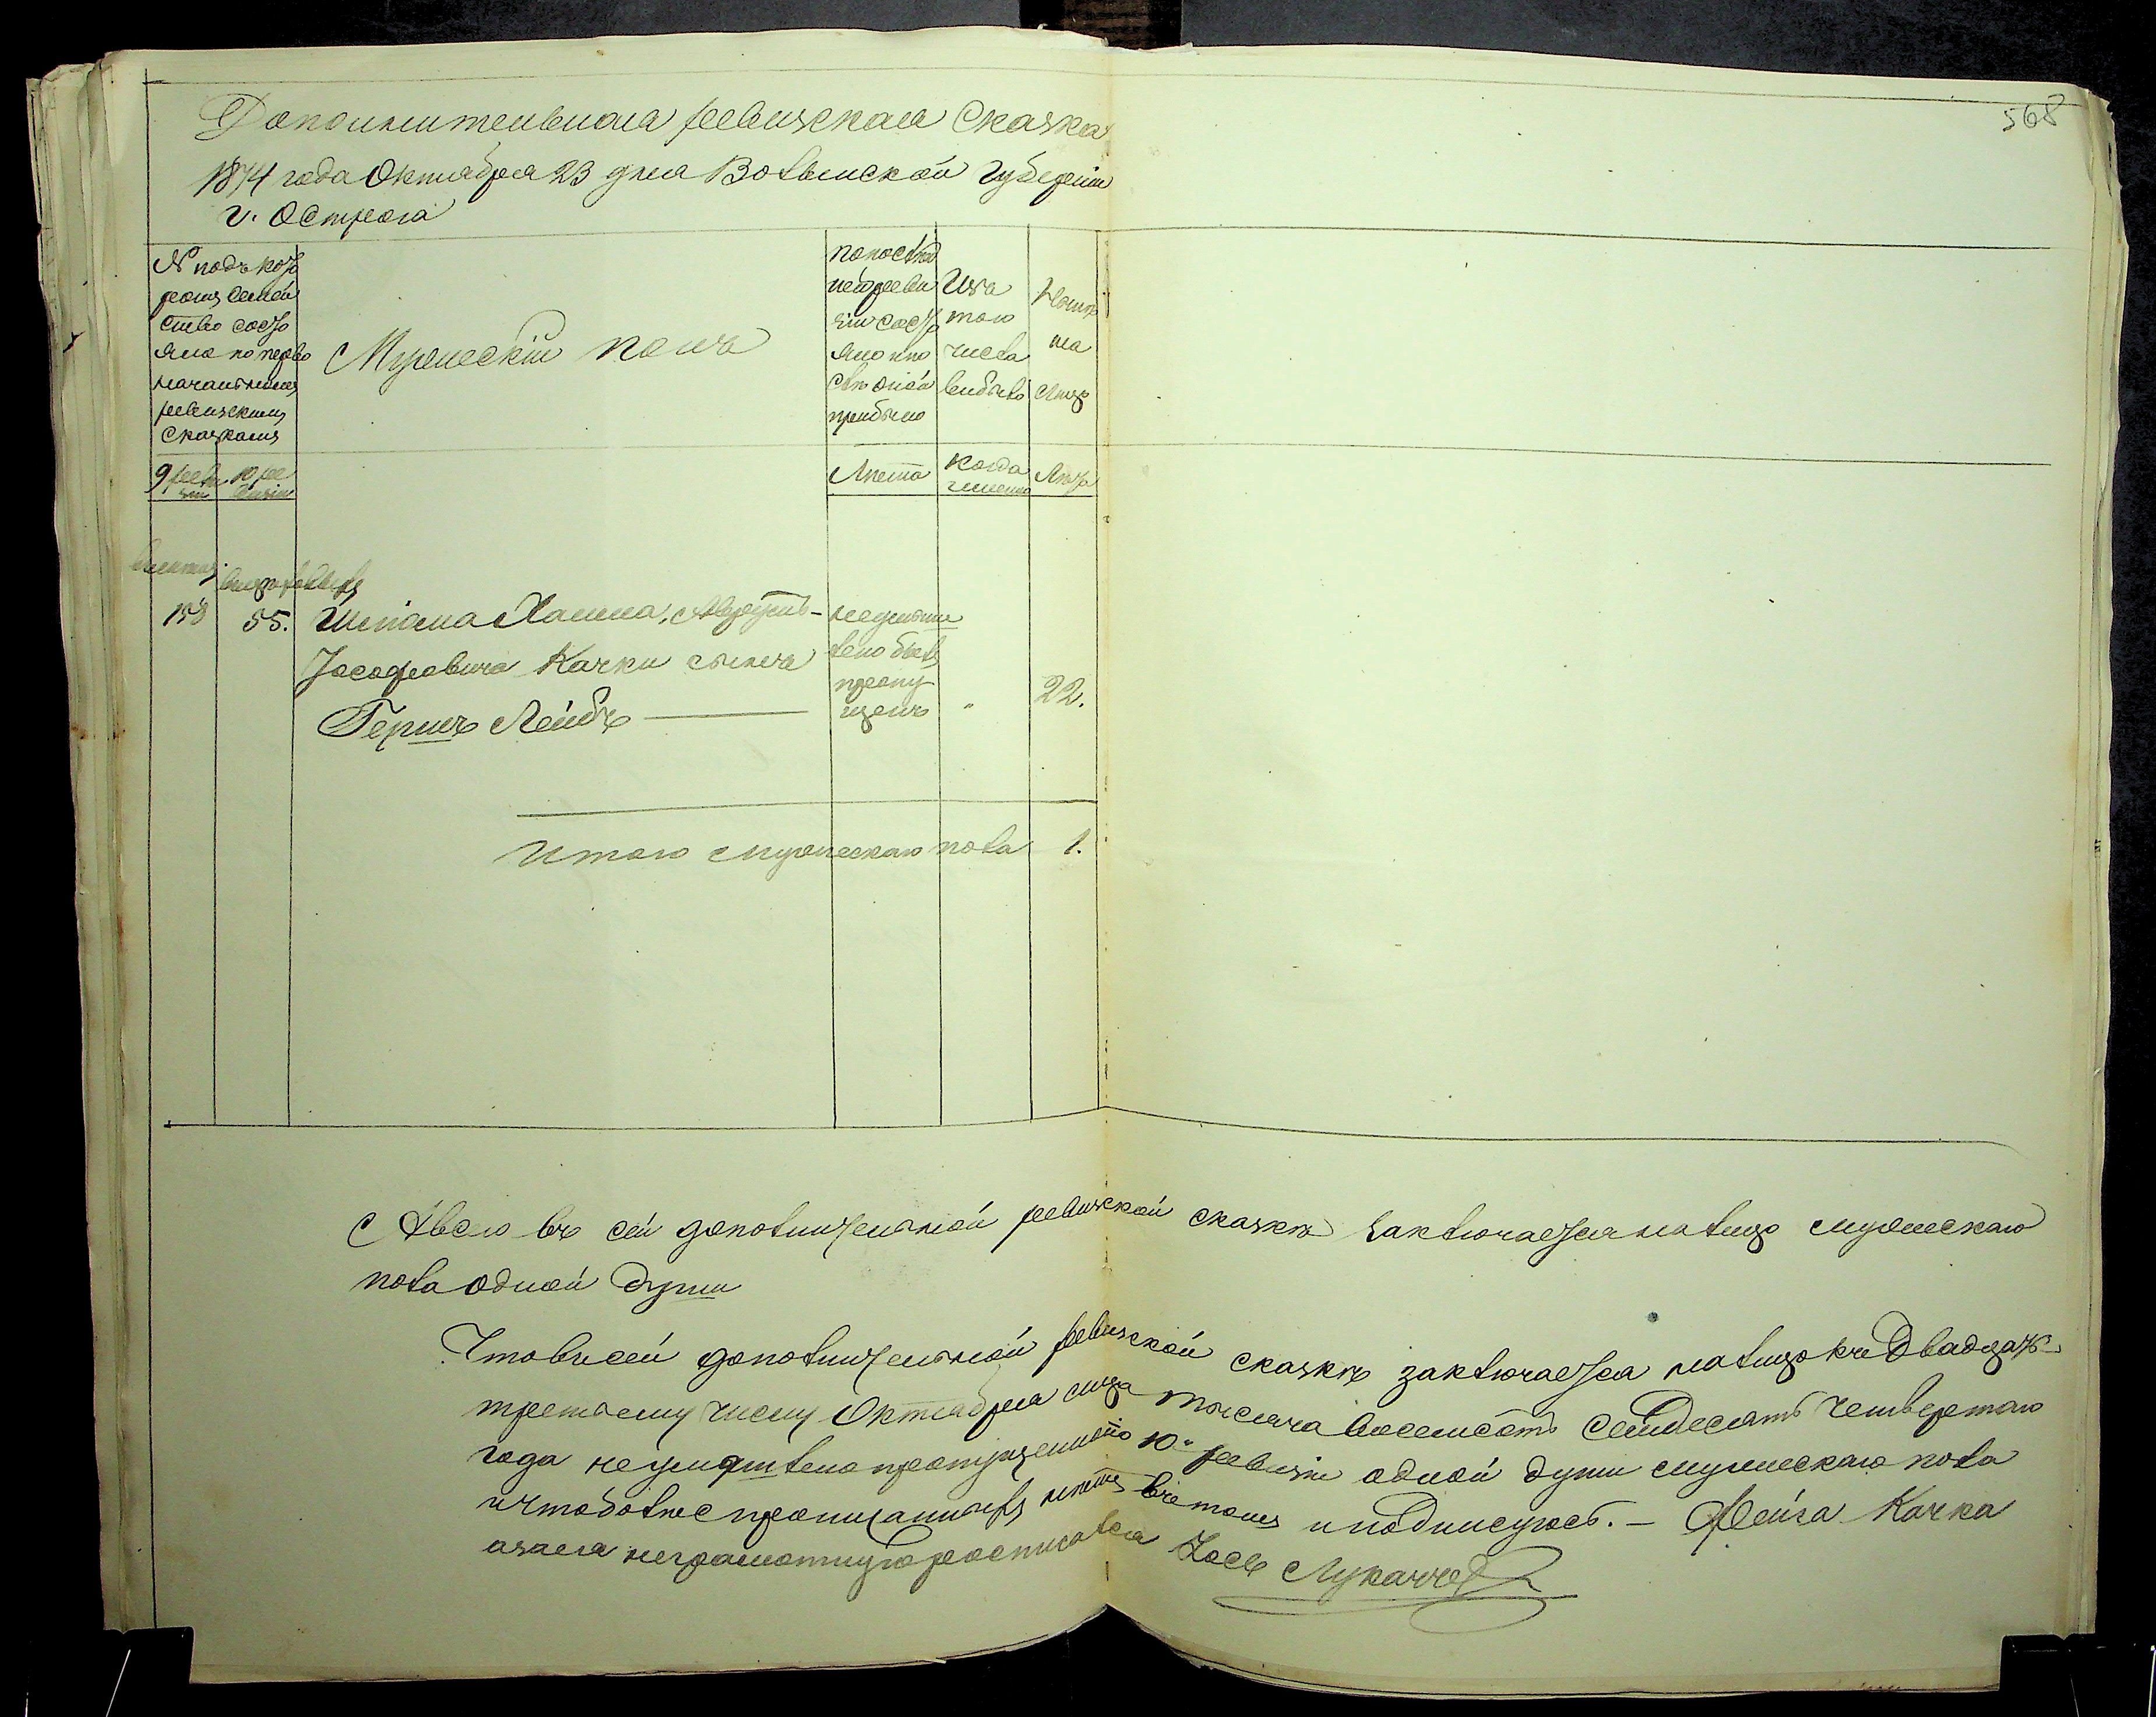 568
Дополнительная ревизская Сказка
1874 года Октября 23 дня Волынской губерніи
г. Острога
№ подъ кото
рымъ семей
ство состо
яло по перво
начальнымъ
ревизскимъ
сказкамъ
Мужескій полъ
по послѣд
ней реви
зіи состо
яло и по
слѣ оной
прибыло
Изъ
того
числа
выбыло
Нынѣ
на
лицо
9 реви
зіи
10 ре
визіи
Лѣта
Когда
именно
Лѣта
158
55. Шліома Хаима,
Іосефовича Качки сынъ
Гершъ Лейбъ
неумыш
лено былъ
пропу
щенъ
"
22.
Итого мужескаго пола 1.
А всего въ сей дополнительной ревизской сказкѣ заключается налицо мужескаго
пола одной души
Что въ сей дополнительной ревизской сказкѣ заключается налицо къ Двадцать
третьему числу Октября мца тысяча восемсотъ семдесятъ четвертаго
года неумышлено пропущенного по 10й ревизіи одной души мужескаго пола
и что болѣе прописанныхъ нѣтъ въ томъ и подписуюсь. – Качка
а за его неграмотную росписался Іось